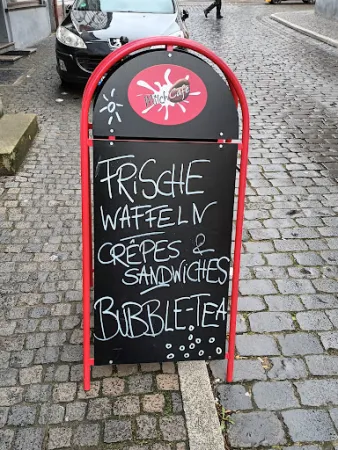 MilchCafé
FRISCHE
WAFFELN
CRÊPES &
SANDWICHES
BUBBLE-TEA